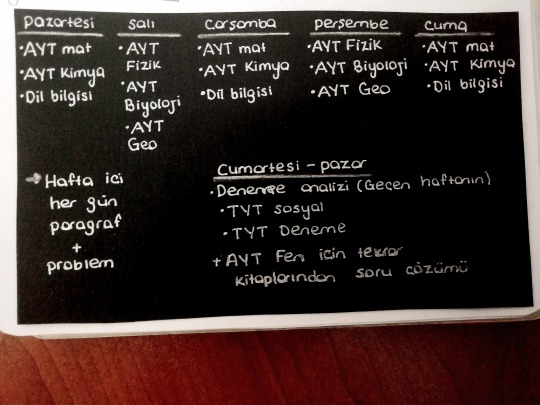 Pazartesi
• AYT mat
• AYT Kimya
• Dil bilgisi
Salı
• AYT
Fizik
• AYT
Biyoloji
• AYT
Geo
Carsamba
• AYT mat
• AYT Kimya
• Dil bilgisi
perşembe
• AYT Fizik
• AYT Biyoloji
• AYT Geo
Cuma
• AYT mat
• AYT Kimya
• Dil bilgisi
→ Hafta ici
her gün
paragraf
+
problem
Cumartesi - pazar
• Deneme analizi (Gecen haftanın)
• TYT sosyal
• TYT Deneme
+ AYT Fen icin tekrar
kitaplarından soru çözümü